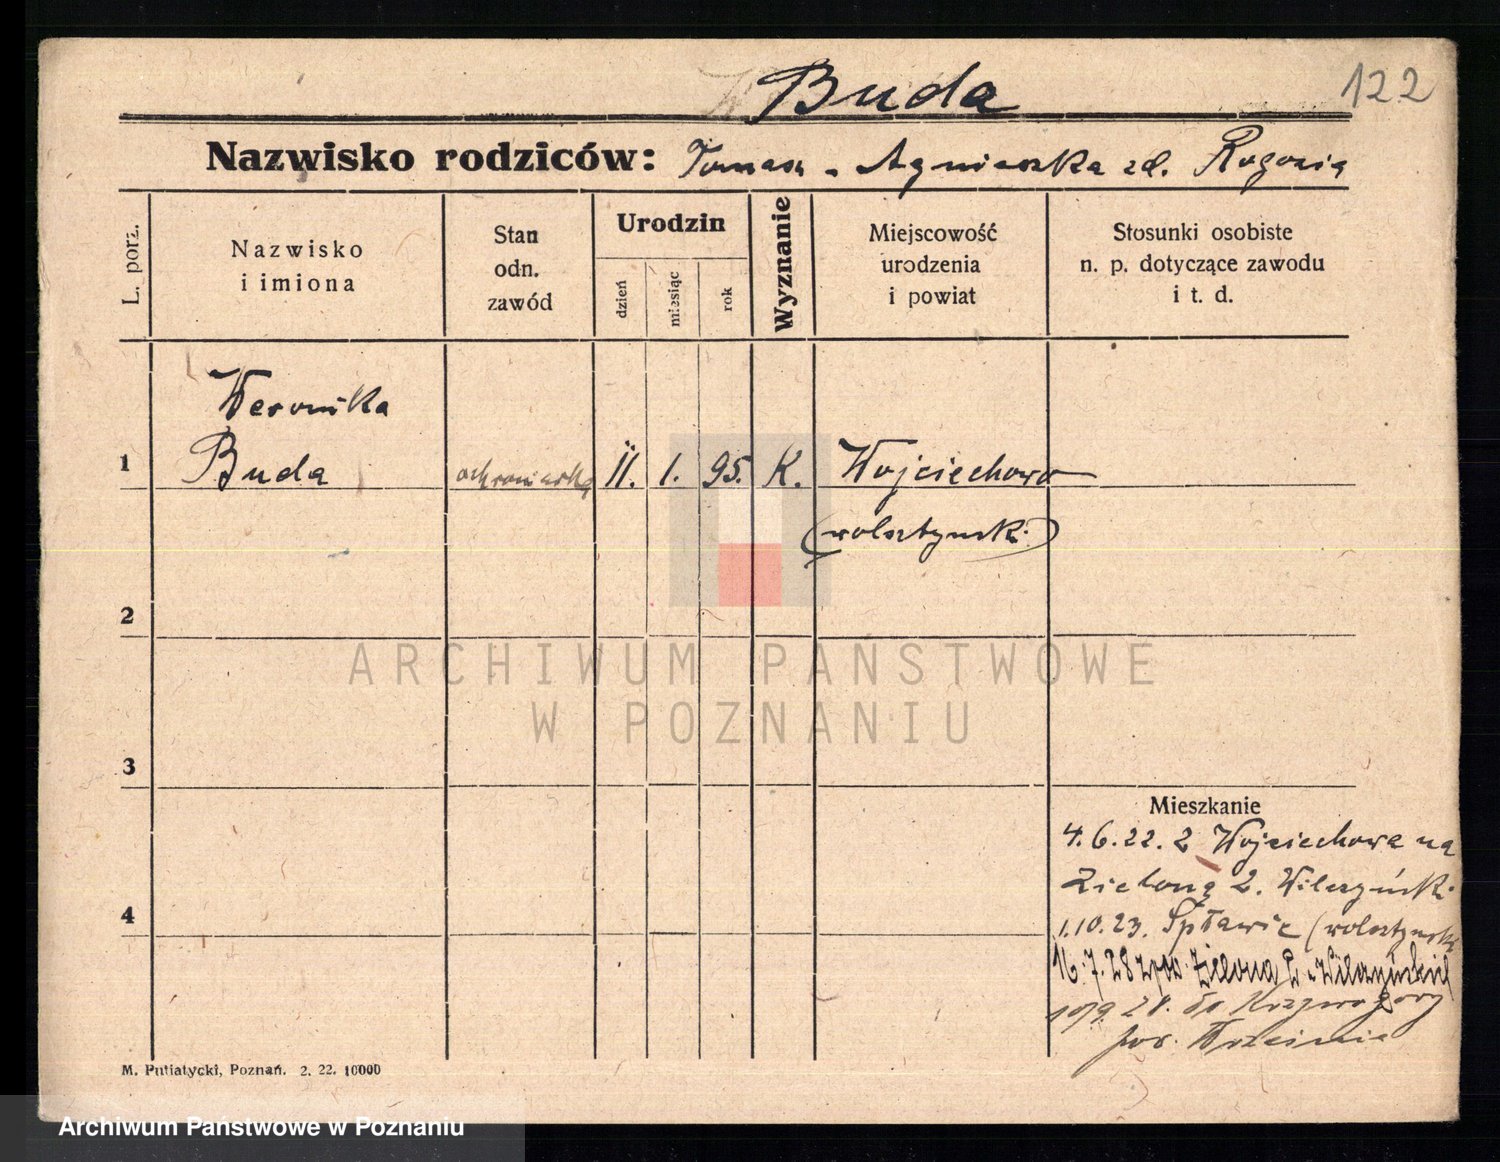 Buda
122
Nazwisko rodziców: Tomasz - Agnieszka zd. Rogozia
L. porz.
Nazwisko
i imiona
Stan
odn.
zawód
Urodzin
dzień
miesiąc
rok
Wyznanie
Miejscowość
urodzenia
i powiat
Stosunki osobiste
n. p. dotyczące zawodu
i t. d.
Weronika
1 Buda ochroniarka 11. 1. 95. K. Wojciechowo
(wolsztyński)
2
ARCHIWUM PAŃSTWOWE
W POZNANIU
3
Mieszkanie
4.6.22. z Wojciechowa na
Zieloną 2. Wilczyńsk.
4
1.10.23. Spławie (wolsztyński
16.7.28 Zielona 2
28. do
pow. Września
M. Putiatycki, Poznań. 2. 22. 10000
Archiwum Państwowe w Poznaniu